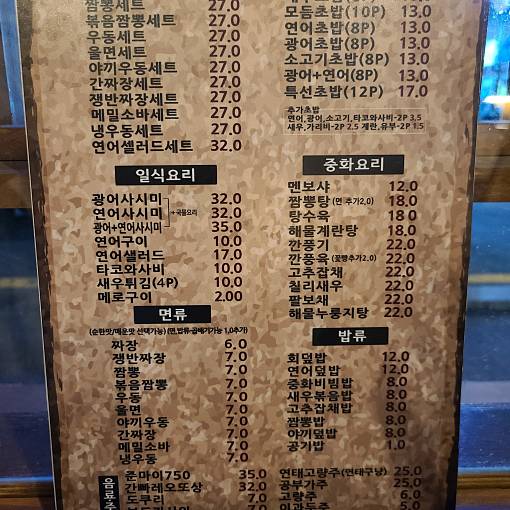 짬뽕세트 27.0
볶음짬뽕세트 27.0
우동세트 27.0
울면세트 27.0
야끼우동세트 27.0
간짜장세트 27.0
쟁반짜장세트 27.0
메밀소바세트 27.0
냉우동세트 27.0
연어샐러드세트 32.0
13.0
모듬초밥(10P) 13.0
연어초밥(8P) 13.0
광어초밥(8P) 13.0
소고기초밥(8P) 13.0
광어+연어(8P) 13.0
특선초밥(12P) 17.0
추가초밥
연어,광어,소고기,타코와사비-2P 3.5
새우,가리비-2P 2.5 계란,유부-2P 1.5
일식요리
광어사시미 32.0
연어사시미 +국물요리 32.0
광어+연어사시미 35.0
연어구이 10.0
연어샐러드 17.0
타코와사비 10.0
새우튀김(4P) 10.0
메로구이 2.00
중화요리
멘보샤 12.0
짬뽕탕(면 추가2.0) 18.0
탕수육 18.0
해물계란탕 18.0
깐풍기 22.0
깐풍육(꽃빵추가2.0) 22.0
고추잡채 22.0
칠리새우 22.0
팔보채 22.0
해물누룽지탕 22.0
면류
(순한맛/매운맛 선택가능)(면,밥류-곱빼기가능 1.0추가)
짜장 6.0
쟁반짜장 7.0
짬뽕 7.0
볶음짬뽕 7.0
우동 7.0
울면 7.0
야끼우동 7.0
간짜장 7.0
메밀소바 7.0
냉우동 7.0
밥류
회덮밥 12.0
연어덮밥 12.0
중화비빔밥 8.0
새우볶음밥 8.0
고추잡채밥 8.0
짬뽕밥 8.0
야끼덮밥 8.0
공기밥 1.0
음료주
준마이750 35.0
간빠레오또상 32.0
도쿠리 7.0
연태고량주(연태구냥) 25.0
공부가주 25.0
고량주 6.0
이과두주 5.0